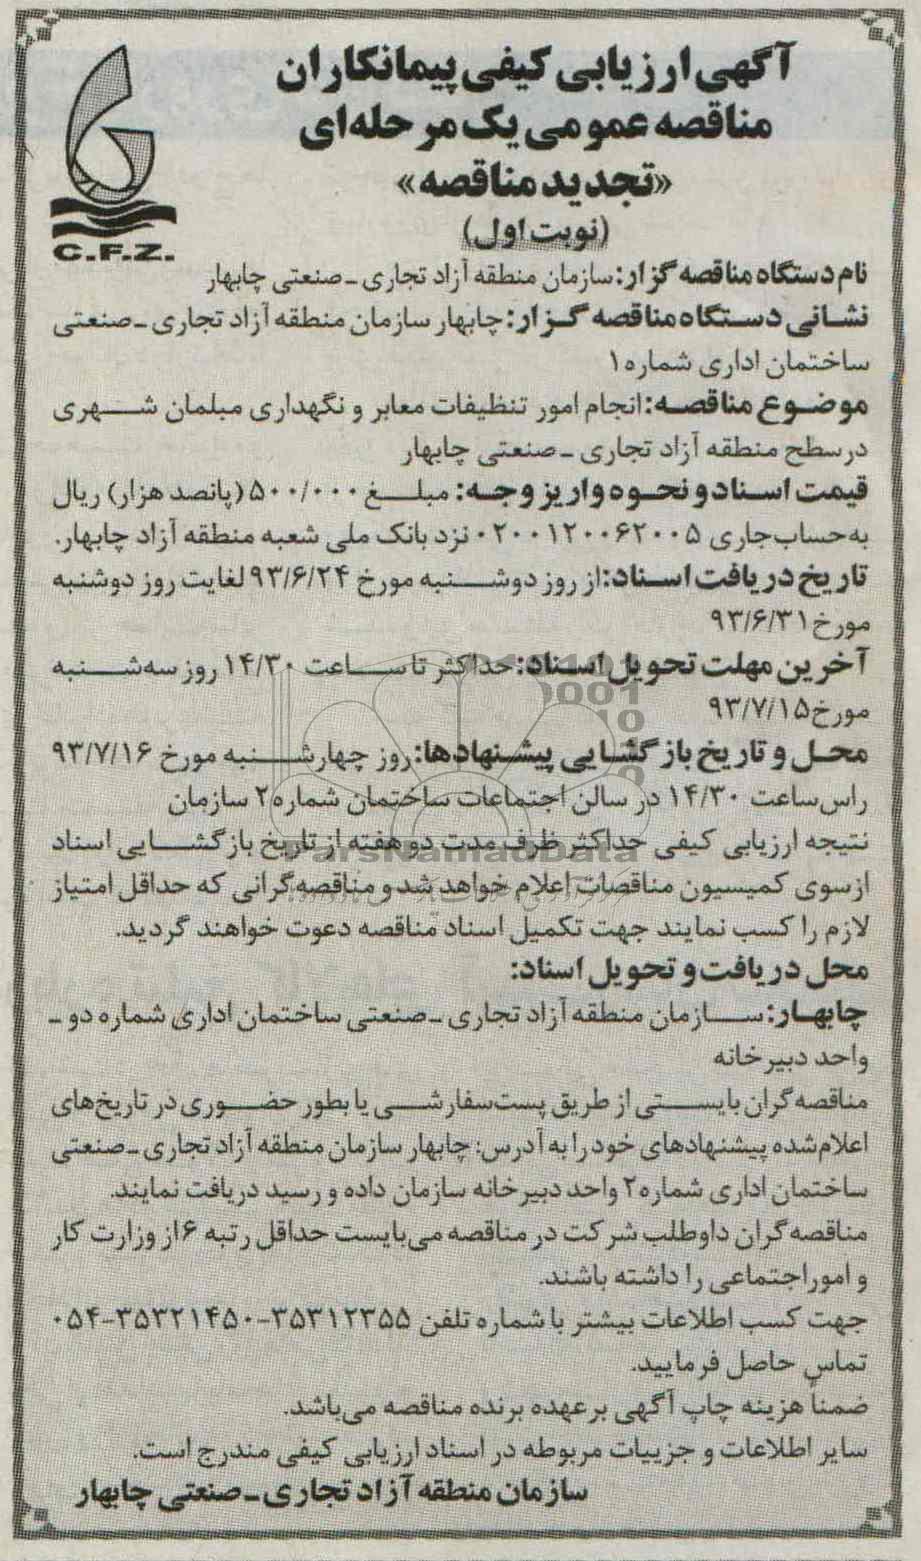 آگهی ارزیابی کیفی پیمانکاران
مناقصه عمومی یک مرحله‌ای
«تجدید مناقصه»
(نوبت اول)
C.F.Z.
نام دستگاه مناقصه گزار: سازمان منطقه آزاد تجاری ـ صنعتی چابهار
نشانی دستگاه مناقصه گزار: چابهار سازمان منطقه آزاد تجاری ـ صنعتی
ساختمان اداری شماره ۱
موضوع مناقصه: انجام امور تنظیفات معابر و نگهداری مبلمان شهری
در سطح منطقه آزاد تجاری ـ صنعتی چابهار
قیمت اسناد و نحوه واریز وجه: مبلغ ۵۰۰/۰۰۰ (پانصد هزار) ریال
به حساب جاری ۰۲۰۰۱۲۰۰۶۲۰۰۵ نزد بانک ملی شعبه منطقه آزاد چابهار.
تاریخ دریافت اسناد: از روز دوشنبه مورخ ۹۳/۶/۲۴ لغایت روز دوشنبه
مورخ ۹۳/۶/۳۱
آخرین مهلت تحویل اسناد: حداکثر تا ساعت ۱۴/۳۰ روز سه‌شنبه
مورخ ۹۳/۷/۱۵
محل و تاریخ بازگشایی پیشنهادها: روز چهارشنبه مورخ ۹۳/۷/۱۶
راس ساعت ۱۴/۳۰ در سالن اجتماعات ساختمان شماره ۲ سازمان
نتیجه ارزیابی کیفی حداکثر ظرف مدت دو هفته از تاریخ بازگشایی اسناد
ParsNamadData
از سوی کمیسیون مناقصات اعلام خواهد شد و مناقصه‌گرانی که حداقل امتیاز
لازم را کسب نمایند جهت تکمیل اسناد مناقصه دعوت خواهند گردید.
محل دریافت و تحویل اسناد:
چابهار: سازمان منطقه آزاد تجاری ـ صنعتی ساختمان اداری شماره دو ـ
واحد دبیرخانه
مناقصه گران بایستی از طریق پست سفارشی یا بطور حضوری در تاریخ‌های
اعلام شده پیشنهادهای خود را به آدرس: چابهار سازمان منطقه آزاد تجاری ـ صنعتی
ساختمان اداری شماره ۲ واحد دبیرخانه سازمان داده و رسید دریافت نمایند.
مناقصه گران داوطلب شرکت در مناقصه می‌بایست حداقل رتبه ۶ از وزارت کار
و امور اجتماعی را داشته باشند.
جهت کسب اطلاعات بیشتر با شماره تلفن ۳۵۳۱۲۳۵۵-۰۵۴-۳۵۳۲۱۴۵۰
تماس حاصل فرمایید.
ضمناً هزینه چاپ آگهی بر عهده برنده مناقصه می‌باشد.
سایر اطلاعات و جزییات مربوطه در اسناد ارزیابی کیفی مندرج است.
سازمان منطقه آزاد تجاری ـ صنعتی چابهار